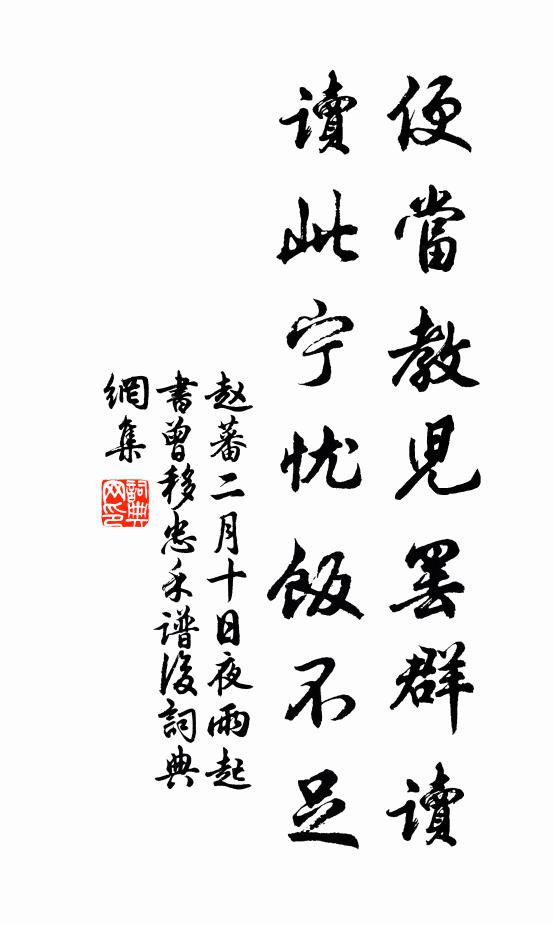 便當教児罢群讀
讀此宁忧飯不足
赵蕃二月十日夜雨起
書曾移忠禾谱後詞典
網集
詞典
网印